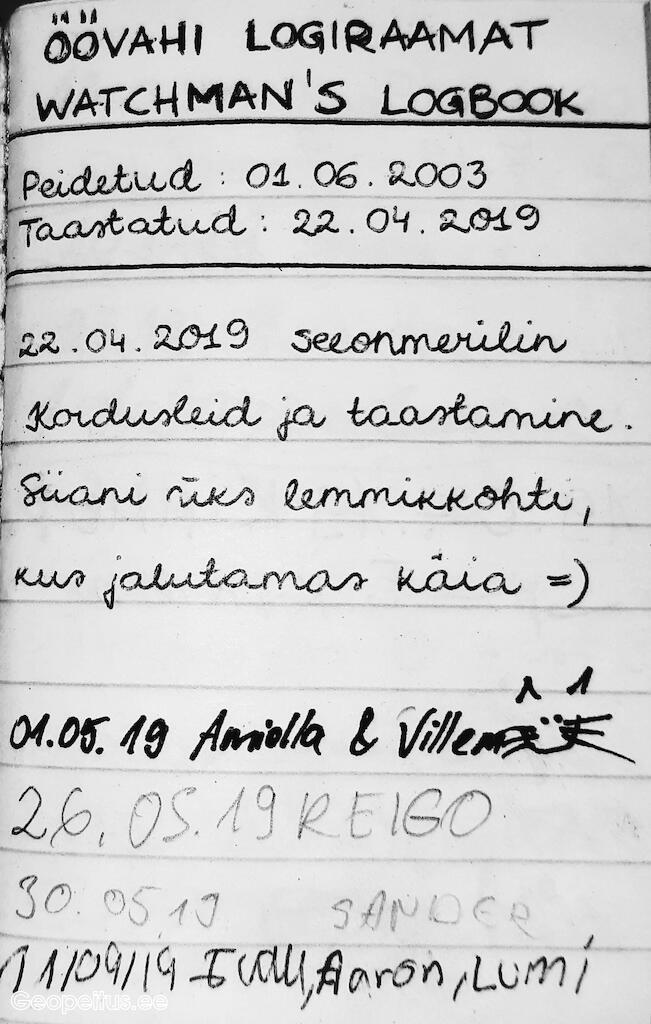 ÖÖVAHI LOGIRAAMAT
WATCHMAN'S LOGBOOK
Peidetud : 01.06.2003
Taastatud : 22.04.2019
22.04.2019 seeonmerilin
Kordusleid ja taastamine.
Siiani üks lemmikkohti,
kus jalutamas käia =)
01.05.19 & Villem
26.05.19 REIGO
30.05.19 SANDER
11/09/19 Aaron, Lumi
Geopeitus.ee